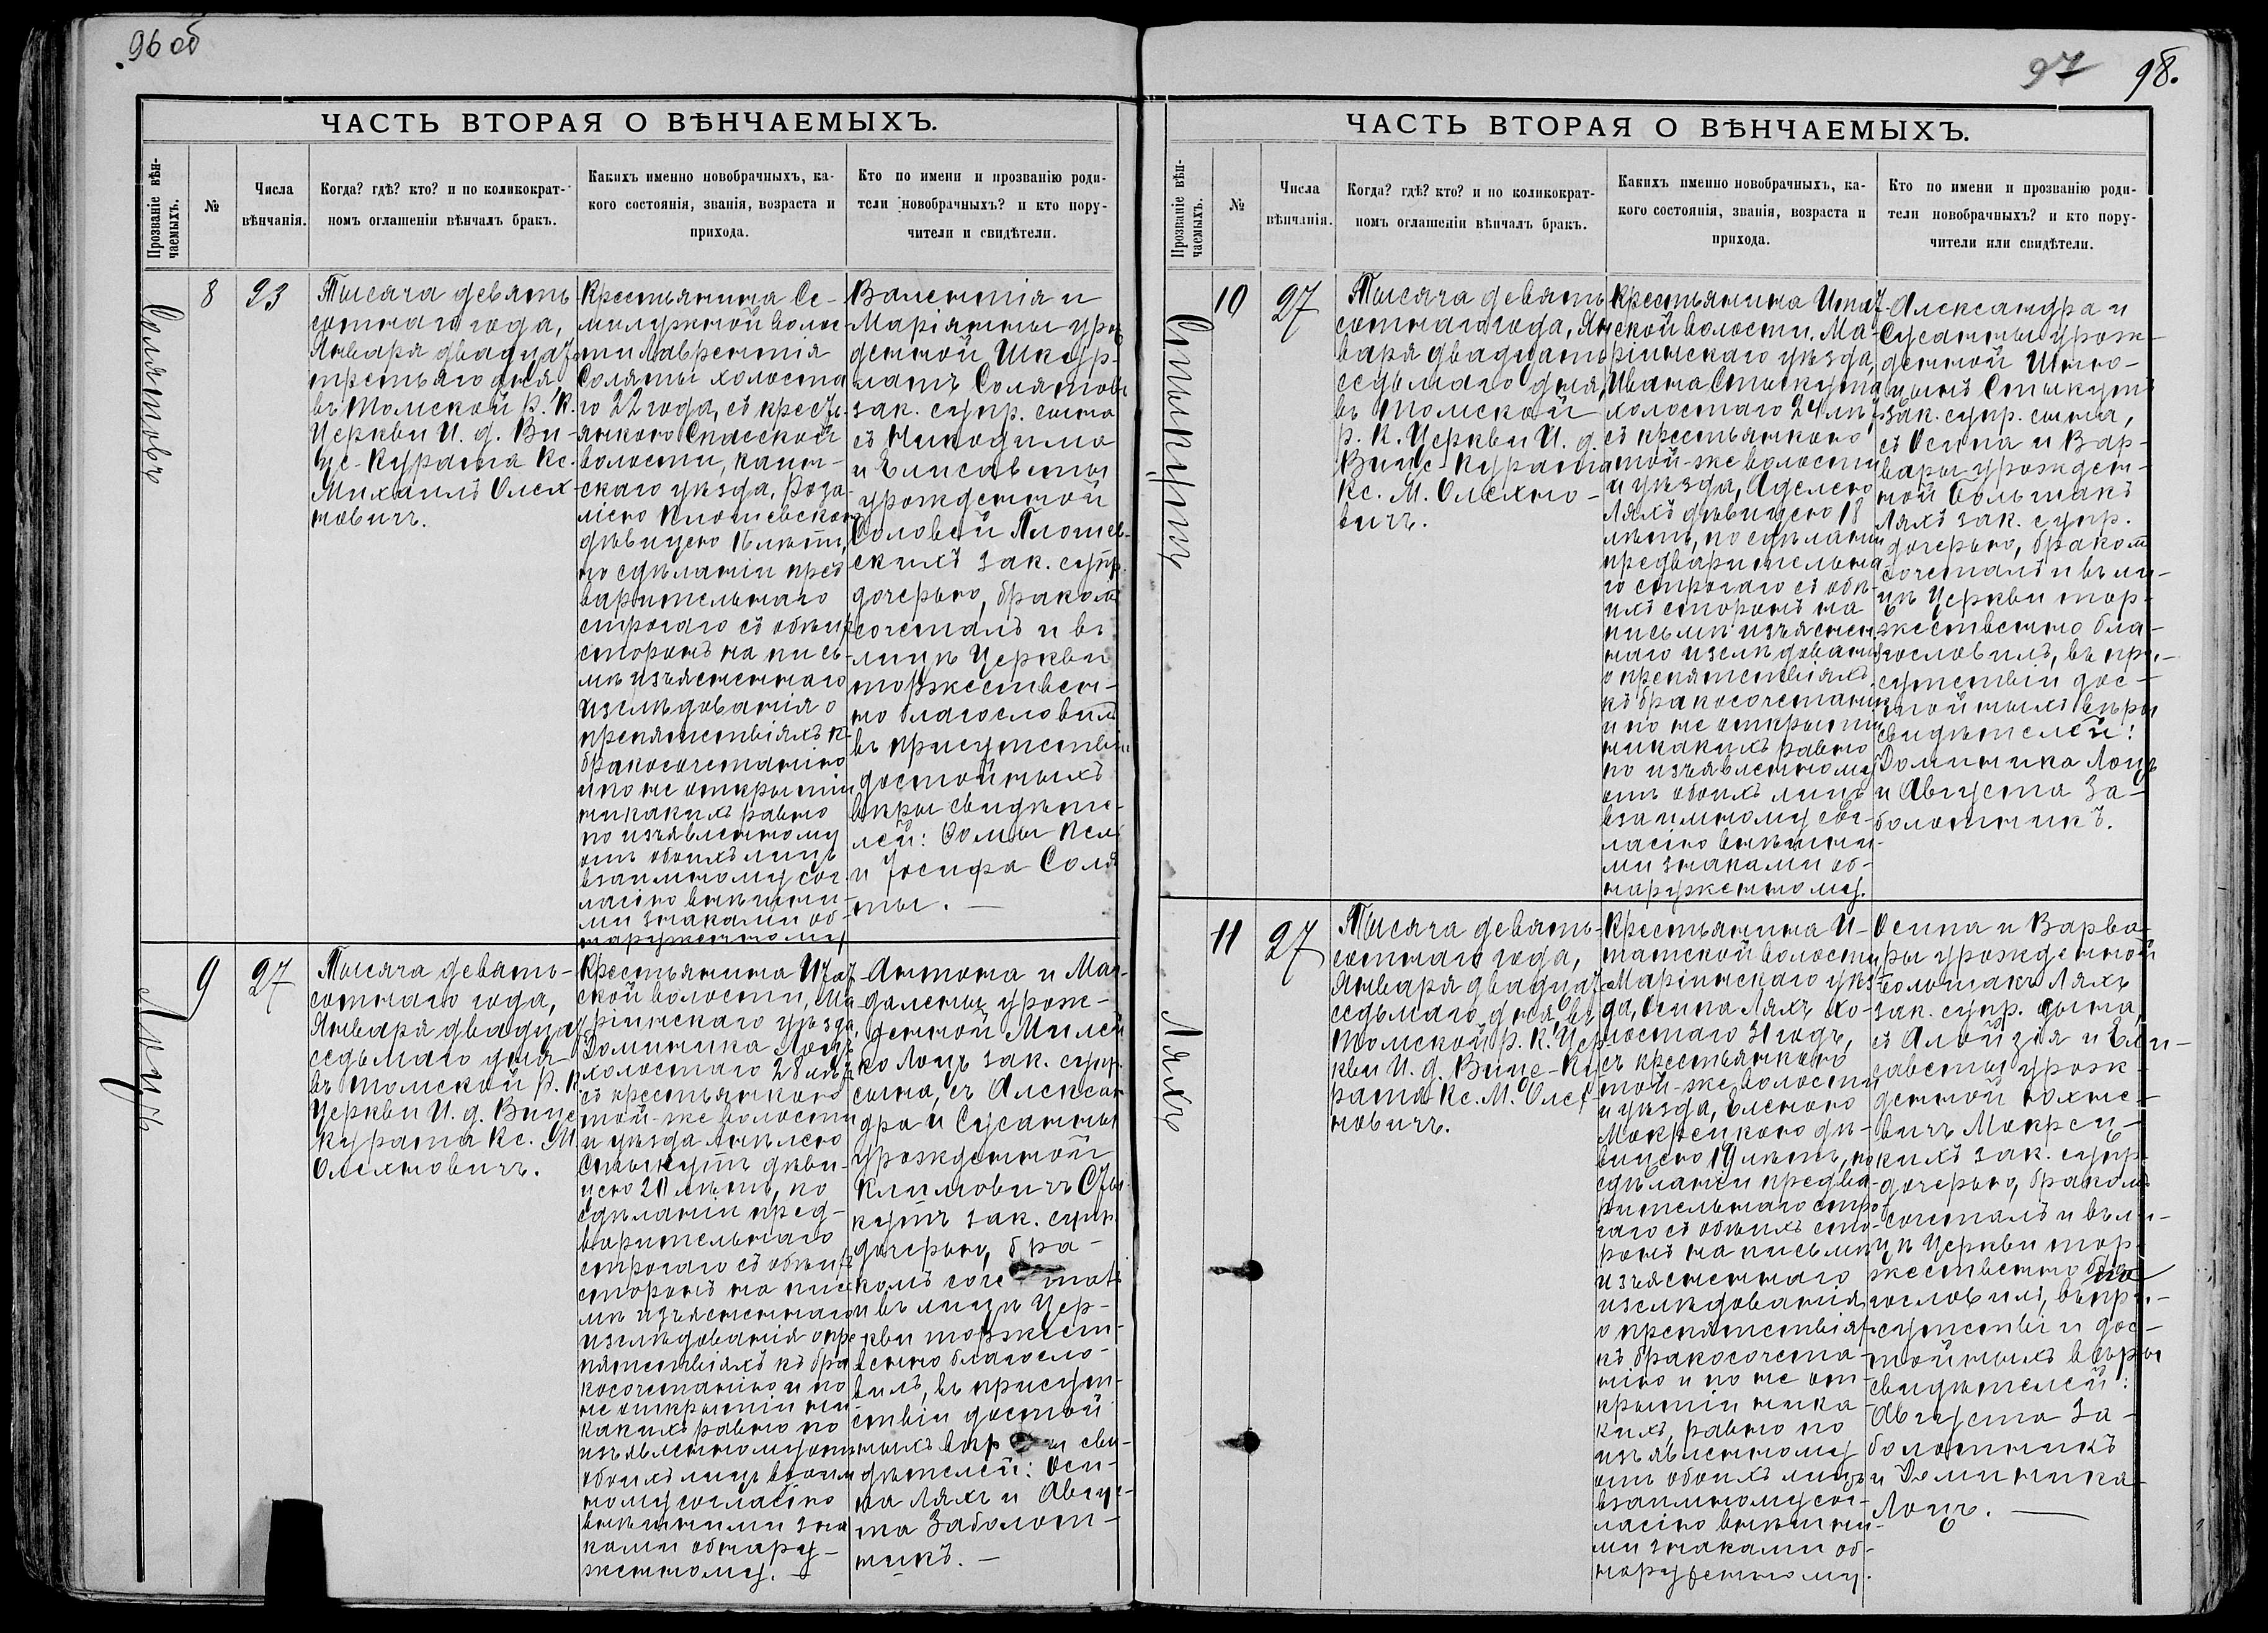 96 об
ЧАСТЬ ВТОРАЯ О ВѢНЧАЕМЫХЪ.
Прозваніе вѣн-
чаемыхъ.
№
Числа
вѣнчанія.
Когда? гдѣ? кто? и по коликократ-
номъ оглашеніи вѣнчалъ бракъ.
Какихъ именно новобрачныхъ, ка-
кого состоянія, званія, возраста и
прихода.
Кто по имени и прозванію роди-
тели новобрачныхъ? и кто пору-
чители и свидѣтели.
8
23
Тысяча девять
сотнаго года,
Января двадцать
третьяго дня
въ Томской Р. К.
Церкви И. д. Ви-
це-Курата Кс.
Михаилъ Олех-
новичъ.
Крестьянина Се-
милужной волос-
ти Лаврентія
Соляты холоста
го 22 года, съ кресть-
янкою Спасской
волости, каин-
скаго уѣзда, Роза-
ліею
дѣвицею 16 лѣтъ,
по сдѣланіи пред
варительнаго
строгаго съ обѣихъ
сторонъ на пись
мѣ изъясненнаго
изслѣдованія о
препятствіяхъ к
бракосочетанію
и по не открытіи
никакихъ равно
по изъявленному
отъ обоихъ лицъ
взаимному сог
ласію внѣшни-
ми знаками об-
наруженному
Валентія и
Маріянны урож
денной Шкур-
латъ Солятовъ
зак. супр. сына
съ Никодима
и Елисаветы
урожденной
Соловей
скихъ зак. супр.
дочерью, бракомъ
сочеталъ и въ
лицѣ Церкви
торжествен-
но благословилъ
въ присутствіи
достойныхъ
вѣры свидѣте-
лей: Ѳомы
и Іосифа Соля
ты. —
9
27
Лоцъ
Тысяча девять-
сотнаго года,
Января двадцать
седьмаго дня
въ Томской Р. К.
Церкви И. д. Вице
Курата Кс. М.
Олехновичъ.
Крестьянина Итат
ской волости, Ма
ріинскаго уѣзда,
Доминика Лоцъ
холостаго 28 лѣтъ
съ крестьянкою
той-же волости
и уѣзда Анѣлею
Стыкутъ дѣви-
цею 20 лѣтъ, по
сдѣланіи пред-
варительнаго
строгаго съ обѣихъ
сторонъ на пись
мѣ изъясненнаго
изслѣдованія о пре
пятствіяхъ къ бра
косочетанію и по
не открытіи ни-
какихъ равно по
изъявленному отъ
обоихъ лицъ взаим
ному согласію
внѣшними зна
ками обнару-
женному. —
Антона и Маг-
далены урож-
денной Милей
ко Лоцъ зак. супр.
сына, съ Алексан
дра и Сусанны
урожденной
Климовичъ Сты-
кутъ зак. супр.
дочерью, бра-
комъ соче талъ
и въ лицѣ Цер-
кви торжест-
венно благосло-
вилъ, въ присут-
ствіи достой
ныхъ вѣры сви-
дѣтелей: Оси-
па Ляхъ и Авгус-
та Заболот-
никъ. —
97 98.
ЧАСТЬ ВТОРАЯ О ВѢНЧАЕМЫХЪ.
Прозваніе вѣн-
чаемыхъ.
№
Числа
вѣнчанія.
Когда? гдѣ? кто? и по коликократ-
номъ оглашеніи вѣнчалъ бракъ.
Какихъ именно новобрачныхъ, ка-
кого состоянія, званія, возраста и
прихода.
Кто по имени и прозванію роди-
тели новобрачныхъ? и кто пору-
чители или свидѣтели.
10
27
Стыкутъ
Тысяча девять
сотнаго года, Ян
варя двадцать
седьмаго дня,
въ Томской
Р. К. Церкви И. д.
Вице-Курата
Кс. М. Олехно-
вичъ.
Крестьянина Итат
ской волости, Ма-
ріинскаго уѣзда,
Ивана Стыкута
холостаго 24 лѣтъ
съ крестьянкою
той-же волости
и уѣзда, Аделею
Ляхъ дѣвицею 18
лѣтъ, по сдѣланіи
предварительна
го строгаго съ обѣ-
ихъ сторонъ на
письмѣ изъяснен
наго изслѣдованія
о препятствіяхъ
къ бракосочетанію
и по не открытіи
никакихъ равно
по изъявленному
отъ обоихъ лицъ
взаимному сог-
ласію внѣшни-
ми знаками об-
наруженному.
Александра и
Сусанны урож-
денной Клімо-
вичъ Стыкутъ
зак. супр. сына,
съ Осипа и Вар-
вары урожден-
ной Большакъ
Ляхъ зак. супр.
дочерью, бракомъ
сочеталъ и въ ли-
цѣ Церкви тор-
жественно бла-
гословилъ, въ при-
сутствіи дос-
тойныхъ вѣры
свидѣтелей:
Доминика Лоцъ
и Августа За-
болотникъ.
11
27
Ляхъ
Тысяча девять-
сотнаго года,
Января двадцать
седьмаго дня въ
Томской Р. К. Цер
кви И. д. Вице-Ку
рата Кс. М. Олех-
новичъ.
Крестьянина И-
татской волости
Маріинскаго уѣз-
да, Осипа Ляхъ хо-
лостаго 31 годъ,
съ крестьянкою
той-же волости
и уѣзда, Еленою
Мокрецкою дѣ-
вицею 19 лѣтъ, по
сдѣланіи предва-
рительнаго стро
гаго съ обѣихъ сто-
ронъ на письмѣ
изъясненнаго
изслѣдованія
о препятствіяхъ
къ бракосочета-
нію и по не от-
крытіи ника-
кихъ, равно по
изъявленному
отъ обоихъ лицъ
взаимному сог-
ласію внѣшни-
ми знаками об-
наруженному.
Осипа и Варва-
ры урожденной
Большакъ Ляхъ
зак. супр. сына,
съ Алойзія и Ели-
саветы урож-
денной
вичъ Мокрец-
кихъ зак. супр.
дочерью, бракомъ
сочеталъ и въ ли-
цѣ Церкви тор-
жественно бла
гословилъ, въ при-
сутствіи дос-
тойныхъ вѣры
свидѣтелей:
Августа За-
болотникъ
и Доминика
Лоцъ. —